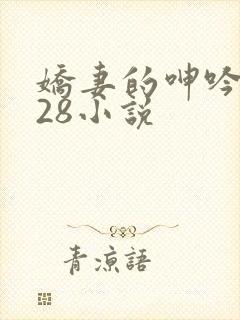 嬌妻的呻吟
28小説
青涼語